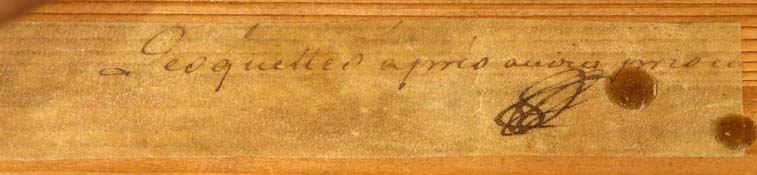 Lesquelles après avoir presu